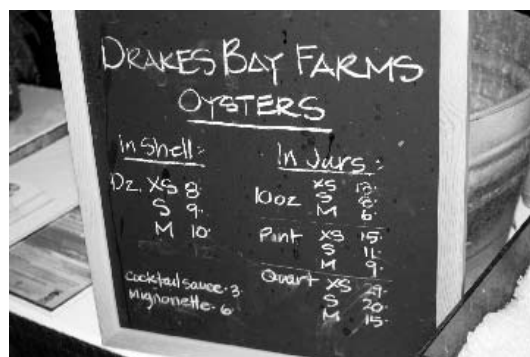 DRAKES BAY FARMS
OYSTERS
in Shell:
Dz. XS 8.
S 9.
M 10.
cocktail sauce . 3.
mignonette . 6.
In Jars:
10oz XS 13.
S 8.
M 6.
Pint XS 15.
S 11.
M 9.
Quart XS 29.
S 20.
M 15.